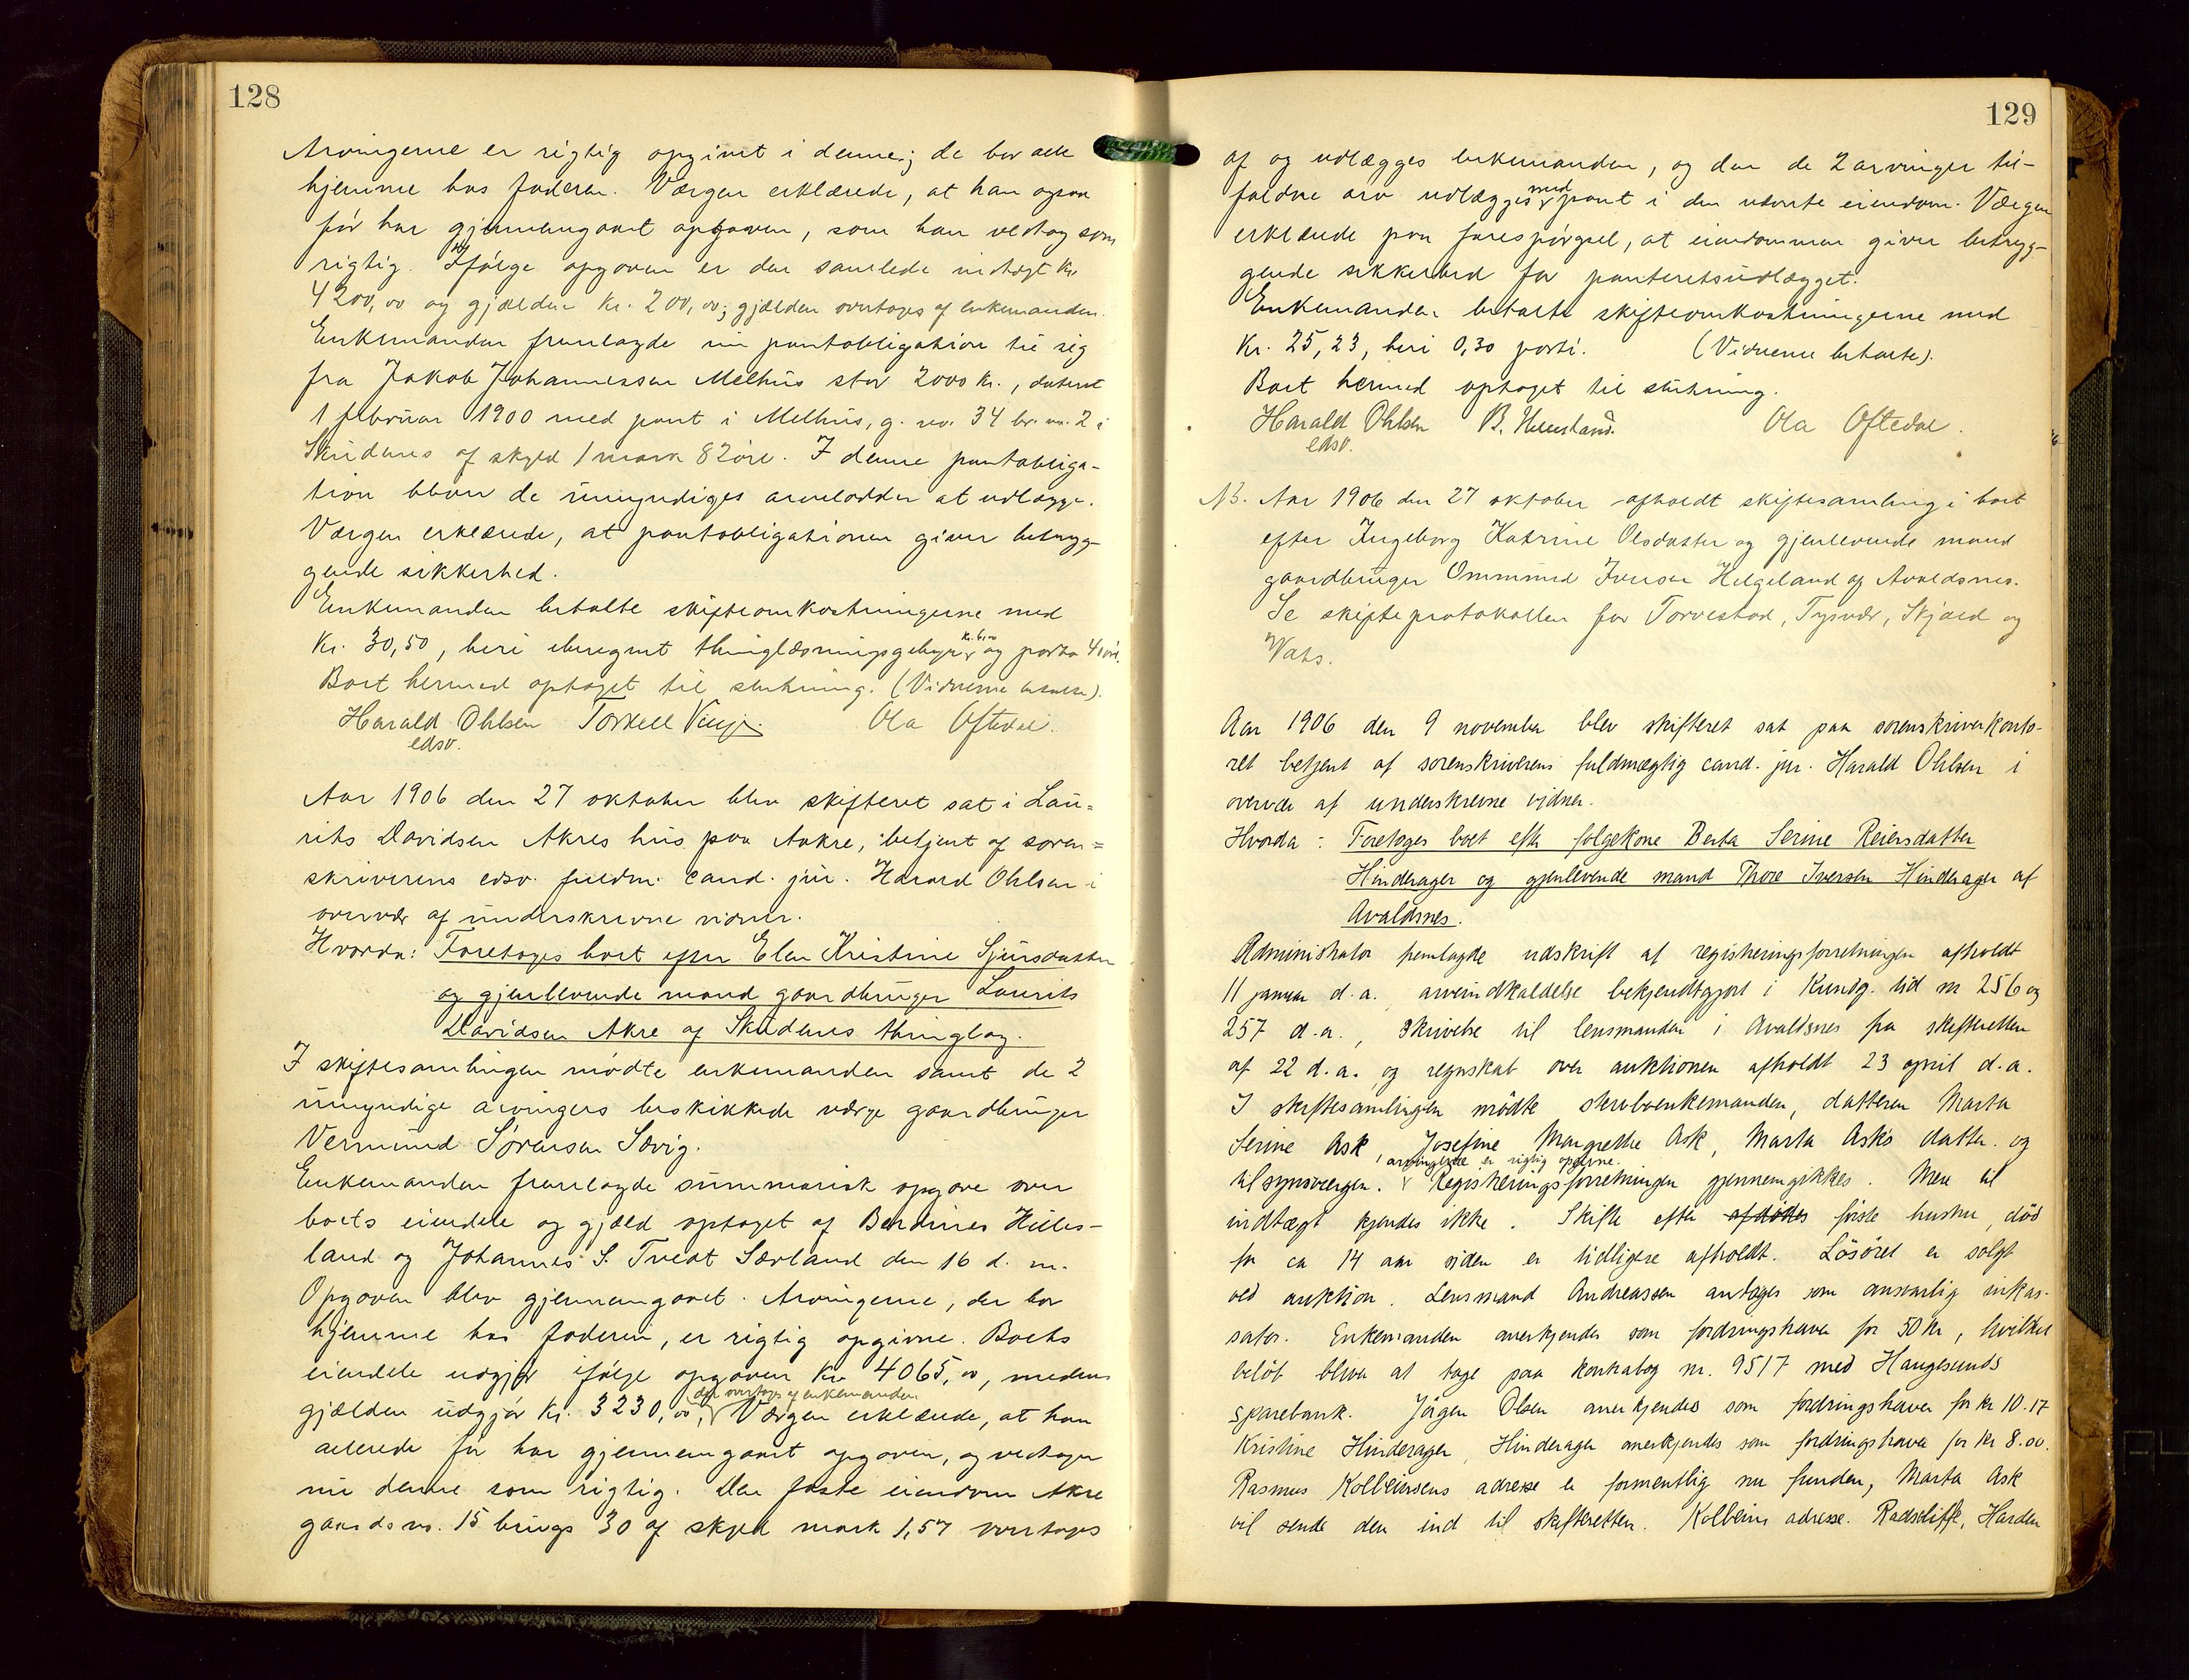 128
Arvingerne er rigtig opgivet i denne; de bor alle
hjemme hos faderen. Værgen erklærede, at han ogsaa
før har gjennemgaaet opgaven, som han vedtog som
rigtig. Ifølge opgaven er den samlede indtægt kr.
4200,00 og gjælden kr. 200,00; gjælden overtages af enkemanden.
Enkemanden fremlagde en pantobligation til sig
fra Jakob Johannessen Melhus stor 2000 kr., dateret
1 februar 1900 med pant i Melhus, g. no. 34 br. no. 2 i
Skudenes af skyld 1 mark 82 øre. I denne pantobliga-
tion bliver de umyndiges arvelodder at udlægge.
Værgen erklærede, at pantobligationen giver betryg-
gende sikkerhed.
Enkemanden betalte skifteomkostningerne med
Kr. 30,50, heri iberegnet thinglæsningsgebyr og porto 40 øre.
Boet hermed optaget til slutning. (Vidnerne betalte).
Harald Ohlsen Torkell Ola Oftedal.
edsv.
Aar 1906 den 27 oktober blev skifteret sat i Lau-
rits Davidsen Akres hus paa Aakre, betjent af soren-
skriverens edsv. fuldm. cand. jur. Harald Ohlsen i
overvær af underskrevne vidner.
Hvorda: Foretages boet efter Elen Kristine Sjursdatter
og gjenlevende mand gaardbruger Laurits
Davidsen Akre af Skudenes thinglag.
I skiftesamlingen mødte enkemanden samt de 2
umyndige arvingers beskikkede værge gaardbruger
Vermund Sørensen Sævig.
Enkemanden fremlagde summarisk opgave over
boets eiendele og gjæld optaget af Berdines Hilles-
land og Johannes S. Tvedt Sørland den 16 d. m.
Opgaven blev gjennemgaaet. Arvingerne, der bor
hjemme hos faderen, er rigtig opgivne. Boets
eiendele udgjør ifølge opgaven kr 4065,00, medens
der overtages af enkemanden
gjælden udgjør kr. 3230,00, Værgen erklærede, at han
allerede før har gjennemgaaet opgaven, og vedtager
nu denne som rigtig. Den faste eiendom Akre
gaards no. 15 brugs 30 af skyld mark 1,57 overtages
129
af og udlægges enkemanden, og den de 2 arvinger til-
faldne arv udlægges med pant i den nævnte eiendom. Værgen
erklærede paa forespørgsel, at eiendommen giver betryg-
gende sikkerhed for panteretsudlægget.
Enkemanden betalte skifteomkostningerne med
Kr. 25,23, heri 0,30 porto. (Vidnerne betalte).
Boet hermed optaget til slutning.
Harald Ohlsen B. Ola Oftedal.
edsv.
NB. Aar 1906 den 27 oktober afholdt skiftesamling i boet
efter Ingeborg Katrine Olsdatter og gjenlevende mand
gaardbruger Ommund Iversen Helgeland af Avaldsnes.
Se skifteprotokollen for Torvestad, Tysvær, Skjold og
Vats.
Aar 1906 den 9 november blev skifteret sat paa sorenskriverkonto-
ret betjent af sorenskriverens fuldmægtig cand. jur. Harald Ohlsen i
overvær af underskrevne vidner.
Hvorda: Foretoges boet efter folgekone Berta Serine Reiersdatter
Hinderager og gjenlevende mand Thore Iversen Hinderager af
Avaldsnes.
Administrator fremlagde udskrift af registreringsforretningen afholdt
11 januar d.a. arveindkaldelse bekjendtgjort i Kundg. tid nr 256 og
257 d.a., skrivelse til lensmanden i Avaldsnes fra skifteretten
af 22 d.a. og regnskab over auktionen afholdt 23 april d.a.
I skiftesamlingen mødte skrubenkemanden, datteren Marta
Serine Ask, Josefine Margrethe Ask, Marta Asks datter og
arvingerne er rigtig opgivne.
tilsynsværgen. Registreringsforretningen gjennemgikkes. Mere til
indtægt kjendes ikke. Skifte efter afdødes første hustru, død
for ca 14 aar siden er tidligere afholdt. Løsøret er solgt
ved auktion. Lensmand Andreassen antages som ansvarlig inkas-
sator. Enkemanden anerkjendes som fordringshaver for 50 kr, hvilket
beløb bliver at tage paa kontrabog nr. 9517 med Haugesunds
sparebank. Jørgen Olsen anerkjendes som fordringshaver for kr 10.17
Kristine Hinderager, Hinderager anerkjendes som fordringshaver for kr 8.00.
Rasmus Kolbeinsens adresse er formentlig nu funden, Marta Ask
vil sende den ind til skifteretten. Kolbeins adresse. Radscliffe, Harden